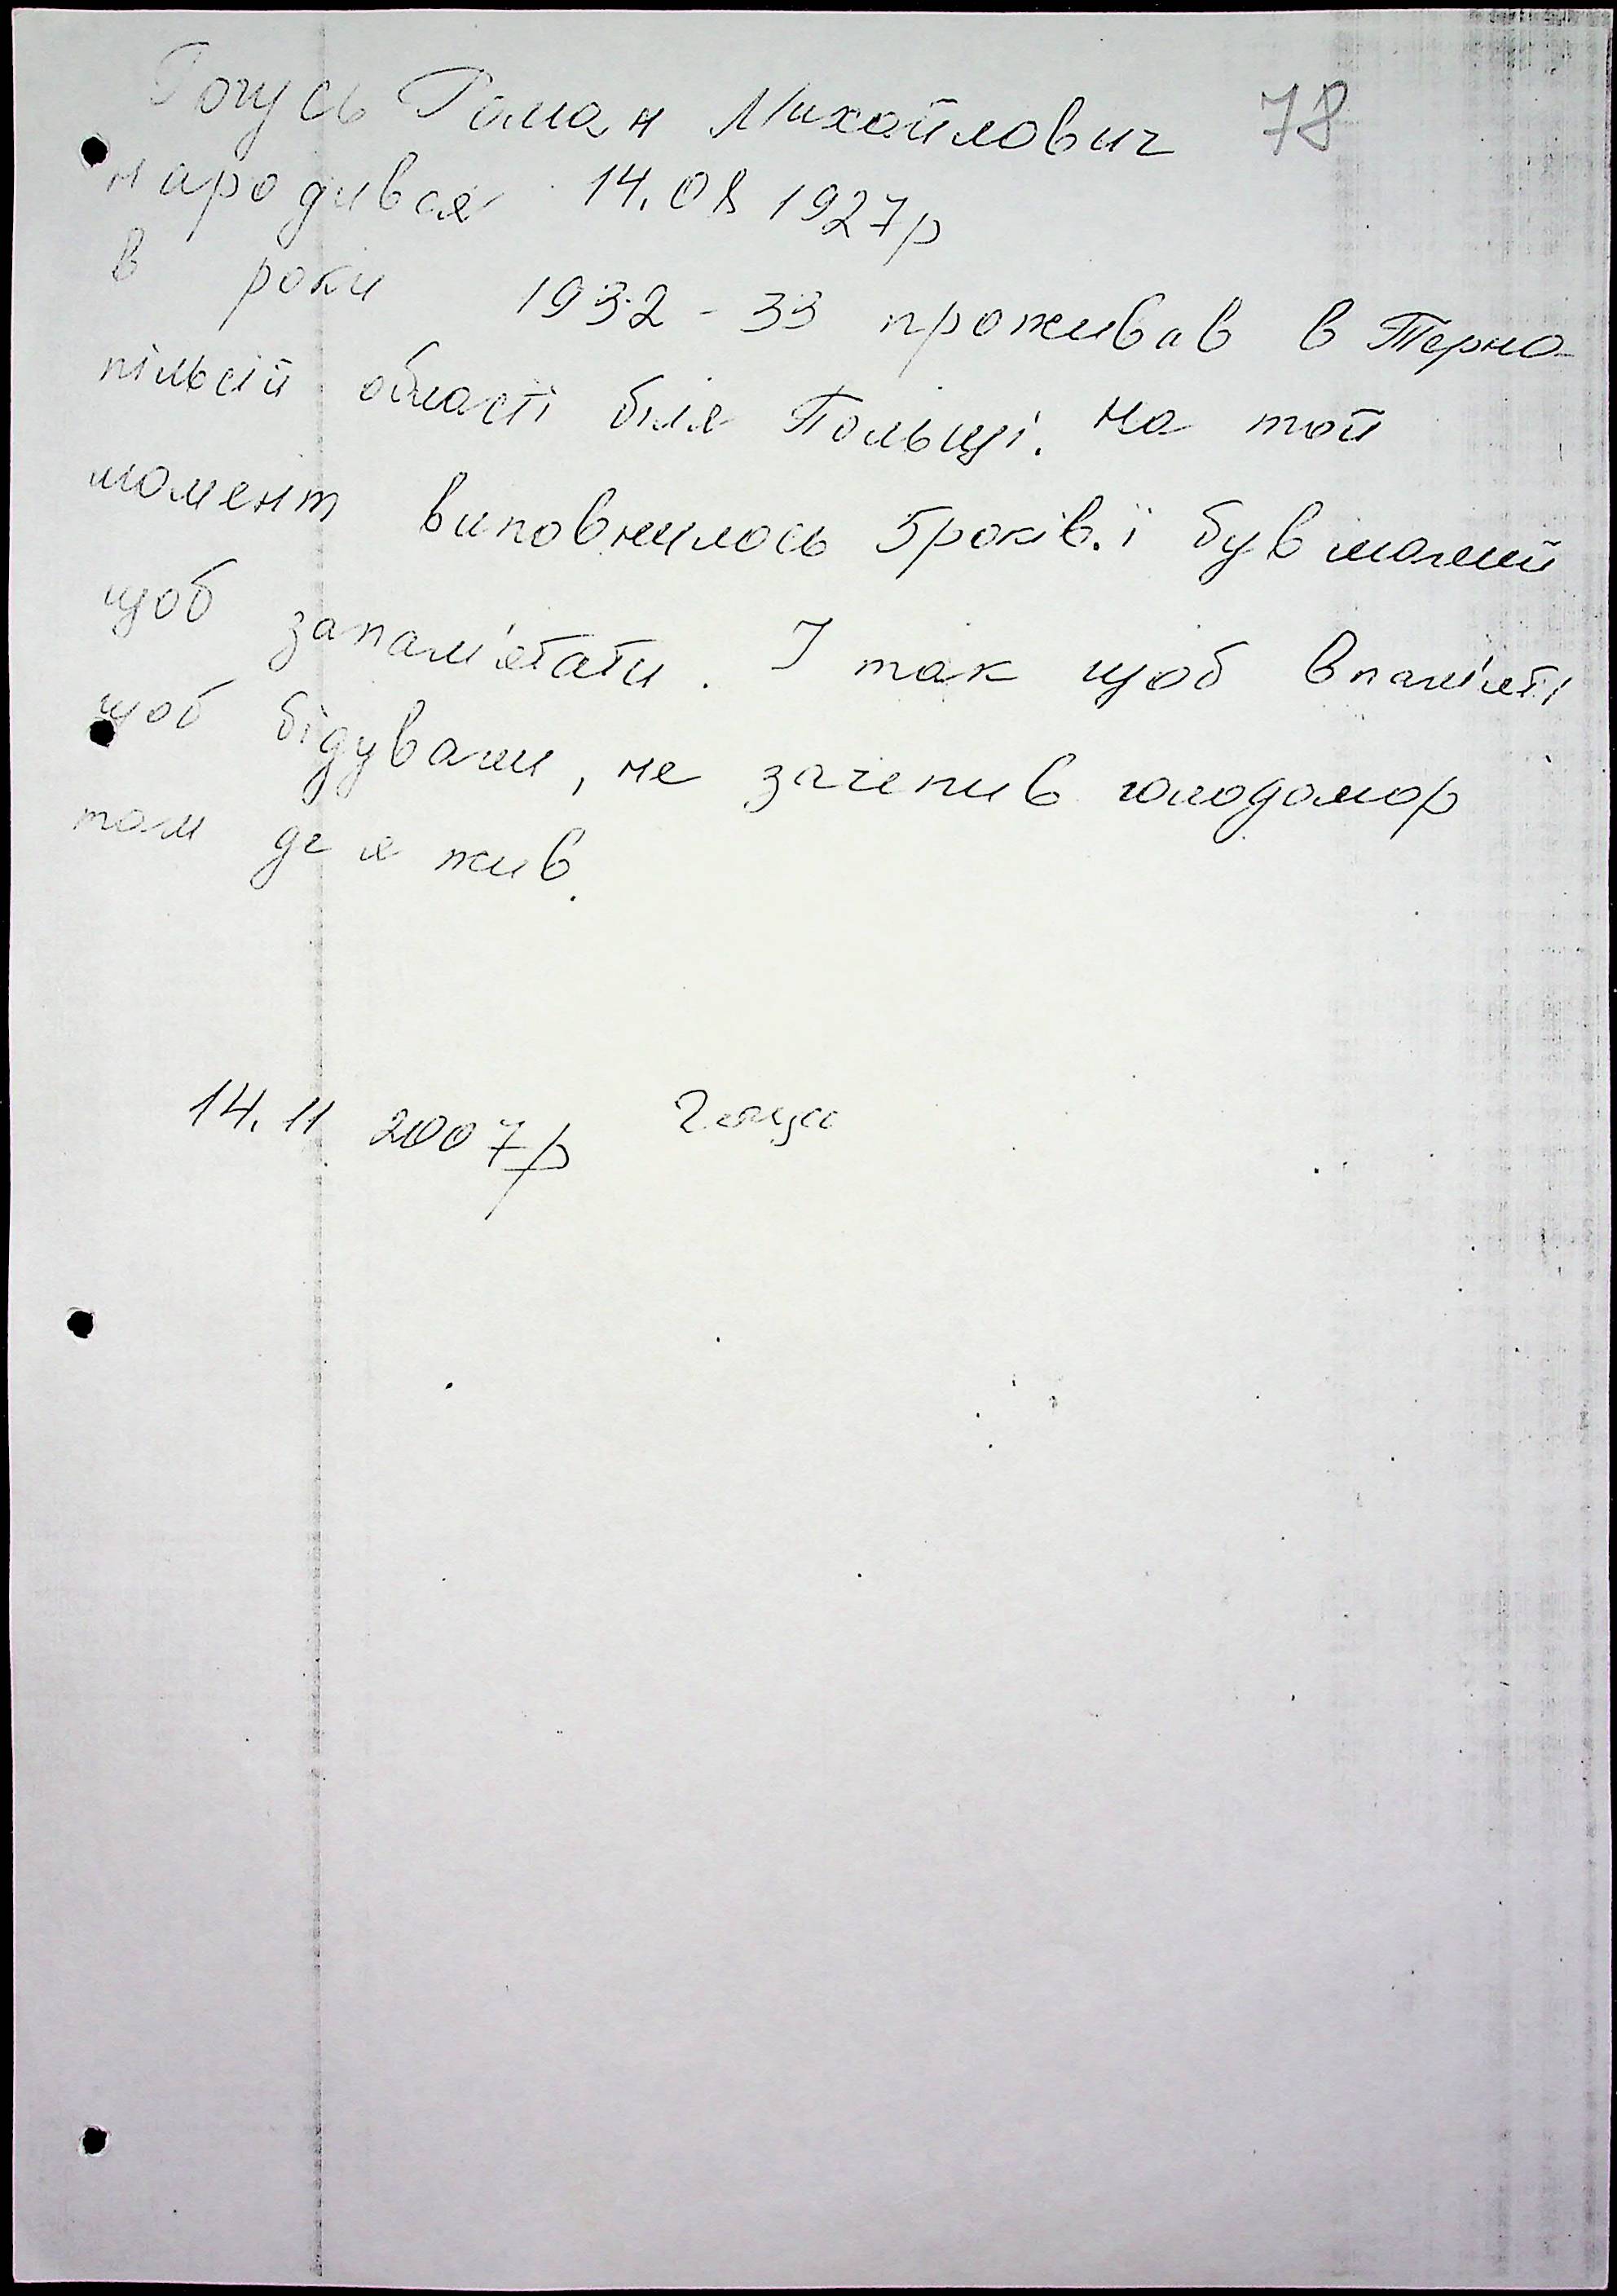 Гогусь Роман Михайлович 78
народився 14.08 1927р
в роки 1932-33 проживав в Терно-
пільсій області біля Польщі. На той
момент виповнилось 5років. і був малий
щоб запам'ятати. І так щоб впам'яті
щоб бідували, не зачепив голодомор
там де я жив.
14.11 2007р